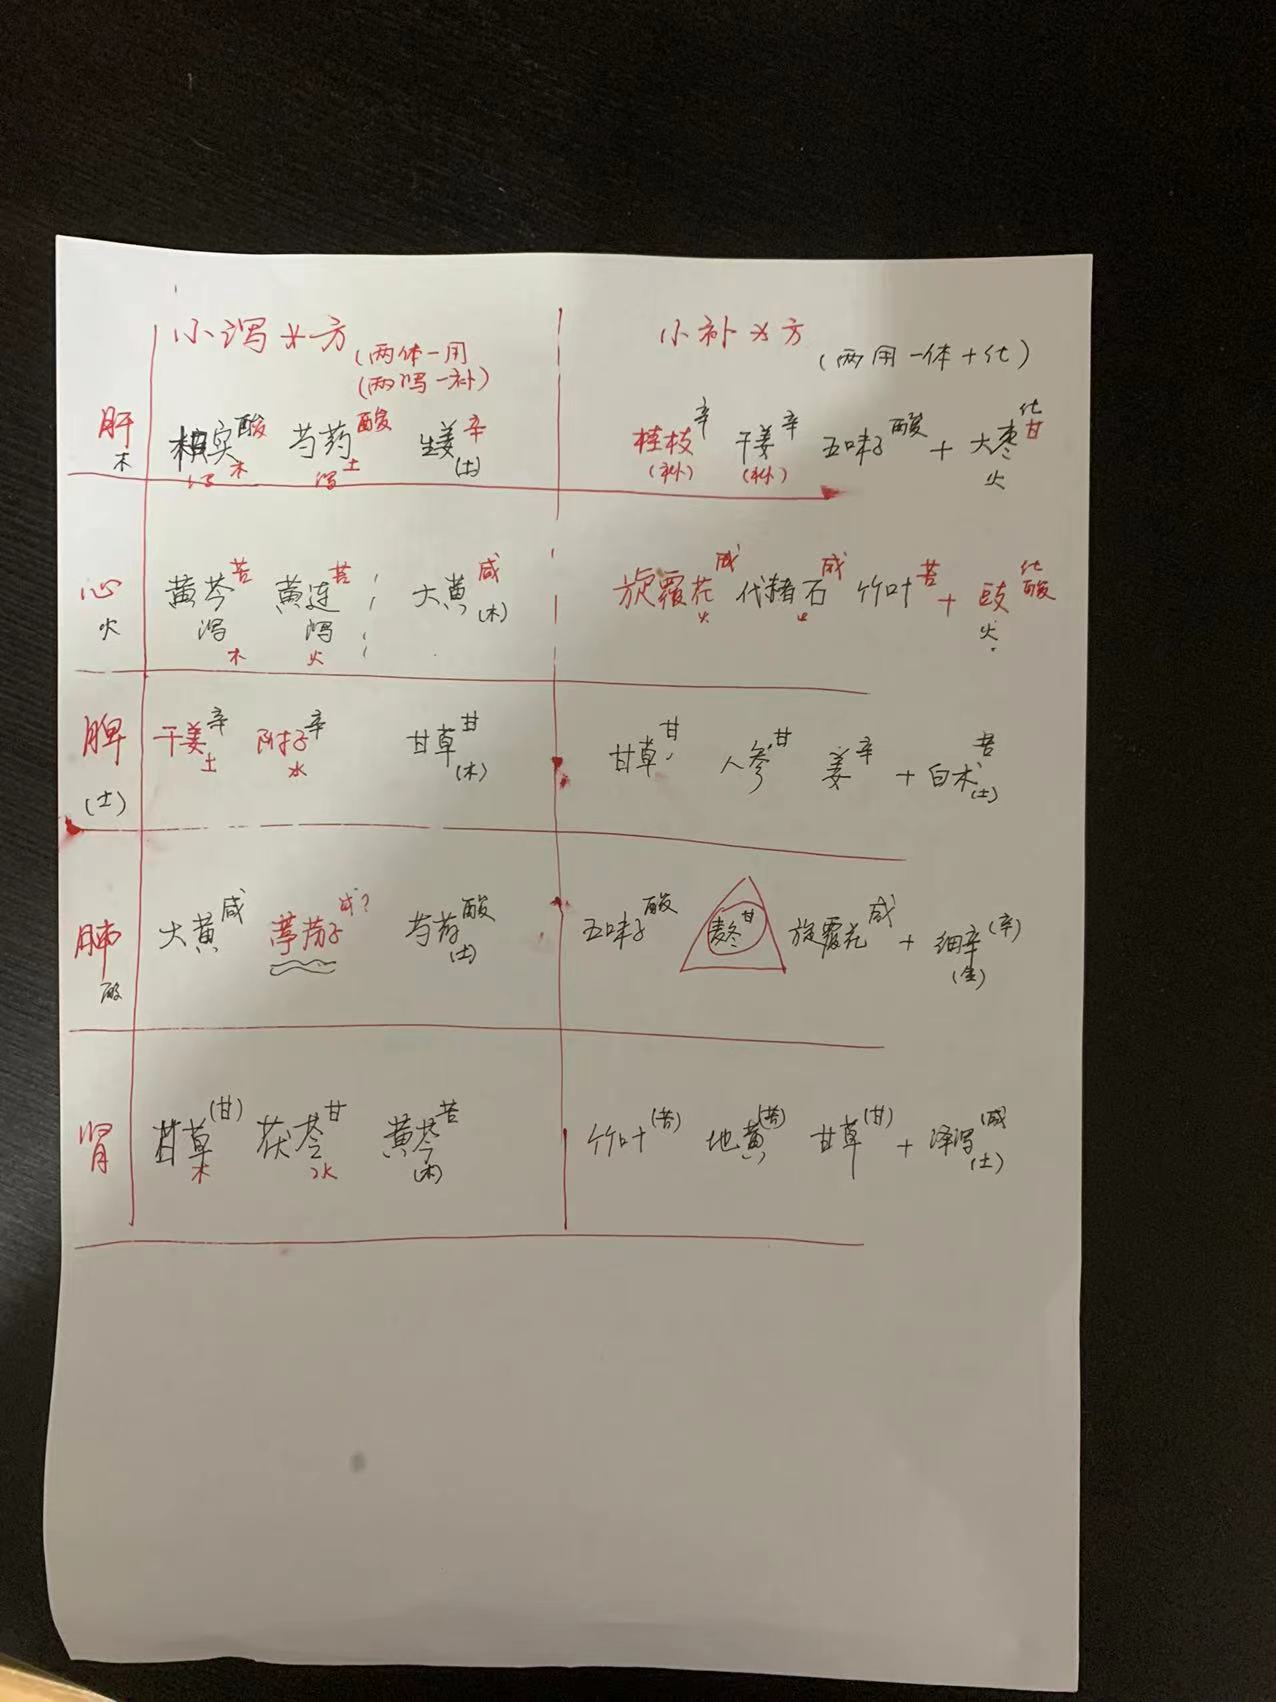 小泻 方 小补 方
(两体一用 (两用一体+化)
(两泻一补)
肝 枳实 酸 芍药 酸 生姜 辛 桂枝 辛 干姜 辛 五味子 酸 + 大枣 化甘
木 泻 木 泻 土 (土) (补) (补) 火
心 黄芩 苦 黄连 苦 大黄 咸 旋覆花 咸 代赭石 咸 竹叶 苦 + 豉 化酸
火 泻 泻 (木) 火 火 火
木 火
脾 干姜 辛 附子 辛 甘草 甘 甘草 甘 人参 甘 姜 辛 + 白术 苦
(土) 土 水 (木) (土)
肺 大黄 咸 葶苈子 咸? 芍药 酸 五味子 酸 麦冬 甘 旋覆花 咸 + 细辛 (辛)
酸 (土) (金)
肾 甘草 (甘) 茯苓 甘 黄芩 苦 竹叶 (苦) 地黄 (苦) 甘草 (甘) + 泽泻 (咸)
木 水 (木) (土)